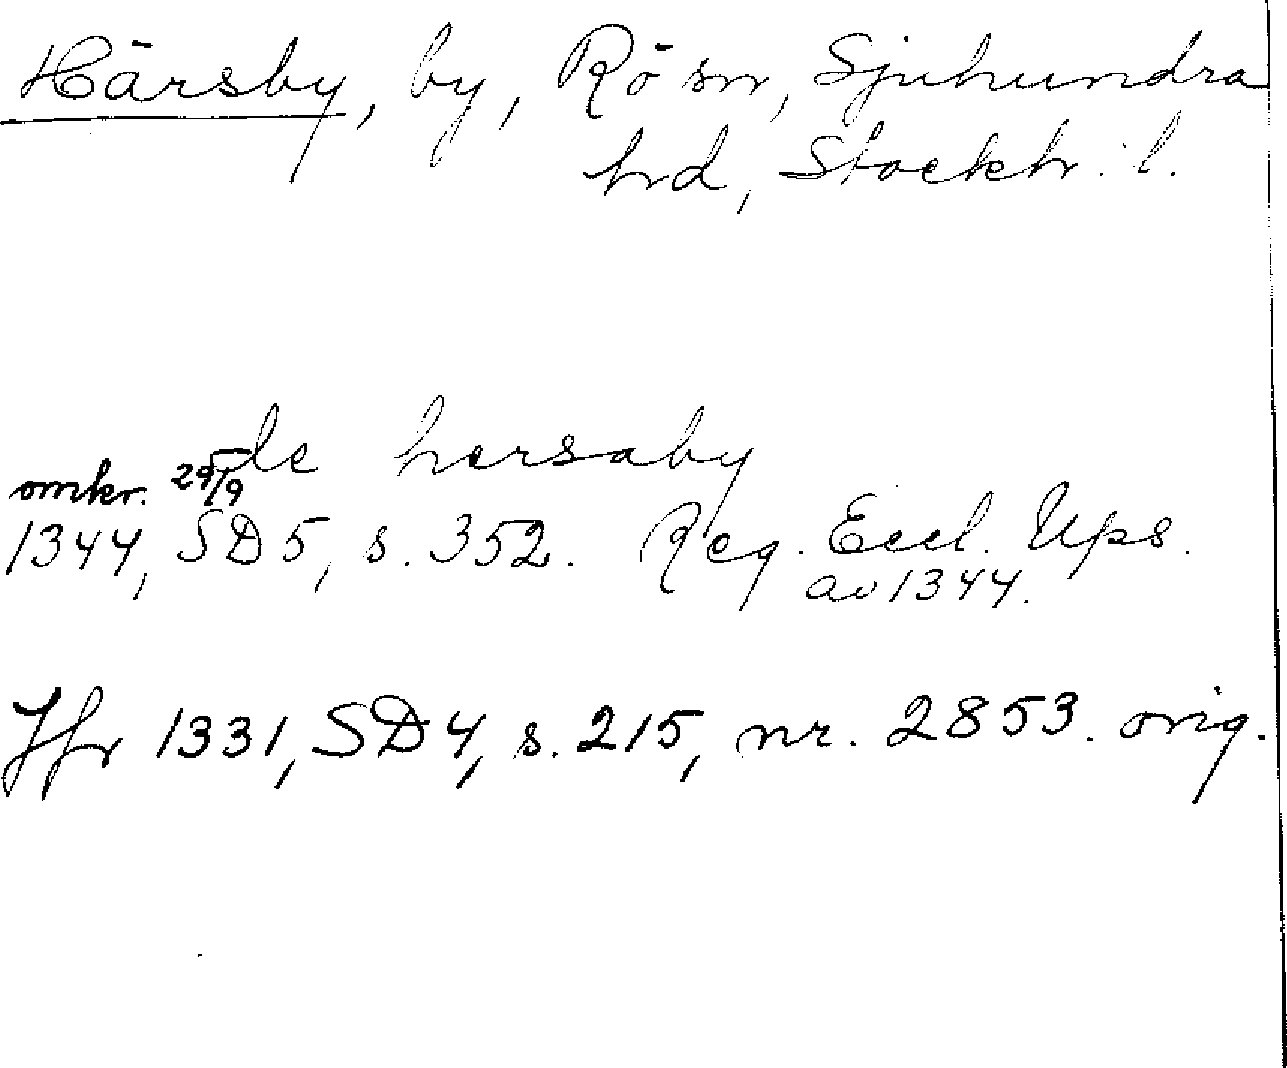 Härsby, by, Rö sn, Sjuhundra
hrd, Stockh. l.
de hersaby
omkr. 29/9
1344, SD 5, s. 352. Reg. Eccl. Ups.
av 1344.
Jfr 1331, SD 4, s. 215, nr. 2853. orig.